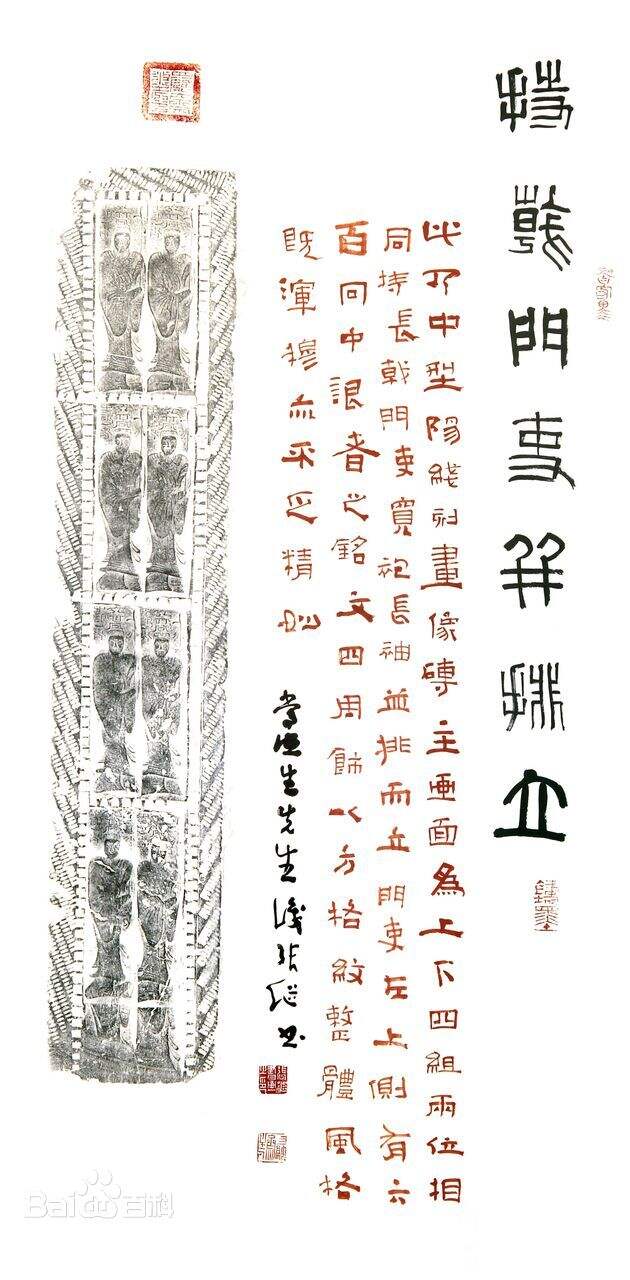 持戟門吏并排立
此乃中型陽綫刻畫像磚主画面為上下四組兩位相
同持長戟門吏寬袍長袖並排而立門吏左上側有六
百中者之銘文四周飾以方格紋整體風格
既渾穆亦不乏精妙
生先生識
Bai百科